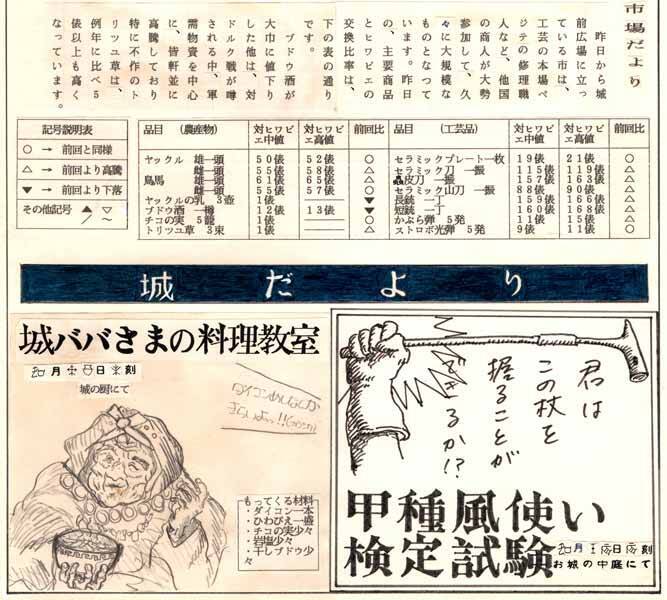 市場だより
昨日から城
前広場に立っ
ている市は、
工芸の本場ペ
ジテの修理職
人など、他国
の商人が大勢
参加して、久
々に大規模な
ものとなって
います。昨日
の、主要商品
とヒワビエの
交換比率は、
下の表の通り
です。
ブドウ酒が
大巾に値下り
した他は、対
ドルク戦が噂
される中、軍
需物資を中心
に、皆軒並に
高騰しており
特に不作のト
リツユ草は、
例年に比べ5
倍以上も高く
なっています。
記号説明表
○ → 前回と同様
△ → 前回より高騰
▼ → 前回より下落
その他記号 ▲ ▽ / 〜
品目 (農産物) 対ヒワビエ中値 対ヒワビエ高値 前回比
ヤックル 雄一頭 50俵 52俵 ○
雌一頭 55俵 58俵 △
鳥馬 雄一頭 65俵 65俵 △
雌一頭 55俵 57俵 ○
ヤックルの乳 3壺 1俵 ▼
ブドウ酒 一樽 12俵 13俵 ▼
チコの実 5籠 1俵 ○
トリツユ草 3束 1俵 △
品目 (工芸品) 対ヒワビエ中値 対ヒワビエ高値 前回比
セラミックプレート一枚 19俵 21俵 ○
セラミック刀 一振 115俵 119俵 △
皮刀 一振 157俵 163俵 △
セラミック山刀 一振 88俵 90俵 ○
長銃 一丁 159俵 166俵 △
短銃 一丁 160俵 168俵 △
かぶら弾 5発 11俵 15俵 △
ストロボ光弾 5発 9俵 11俵 ○
城だより
城ババさまの料理教室
月 日 刻
城の厨にて
もってくる材料
・ダイコン一本
・ひわびえ一盛
・チコの実少々
・岩塩少々
・干しブドウ少
々
君は
この杖を
握ることが
できるか!?
甲種風使い
検定試験
月 日 刻
お城の中庭にて